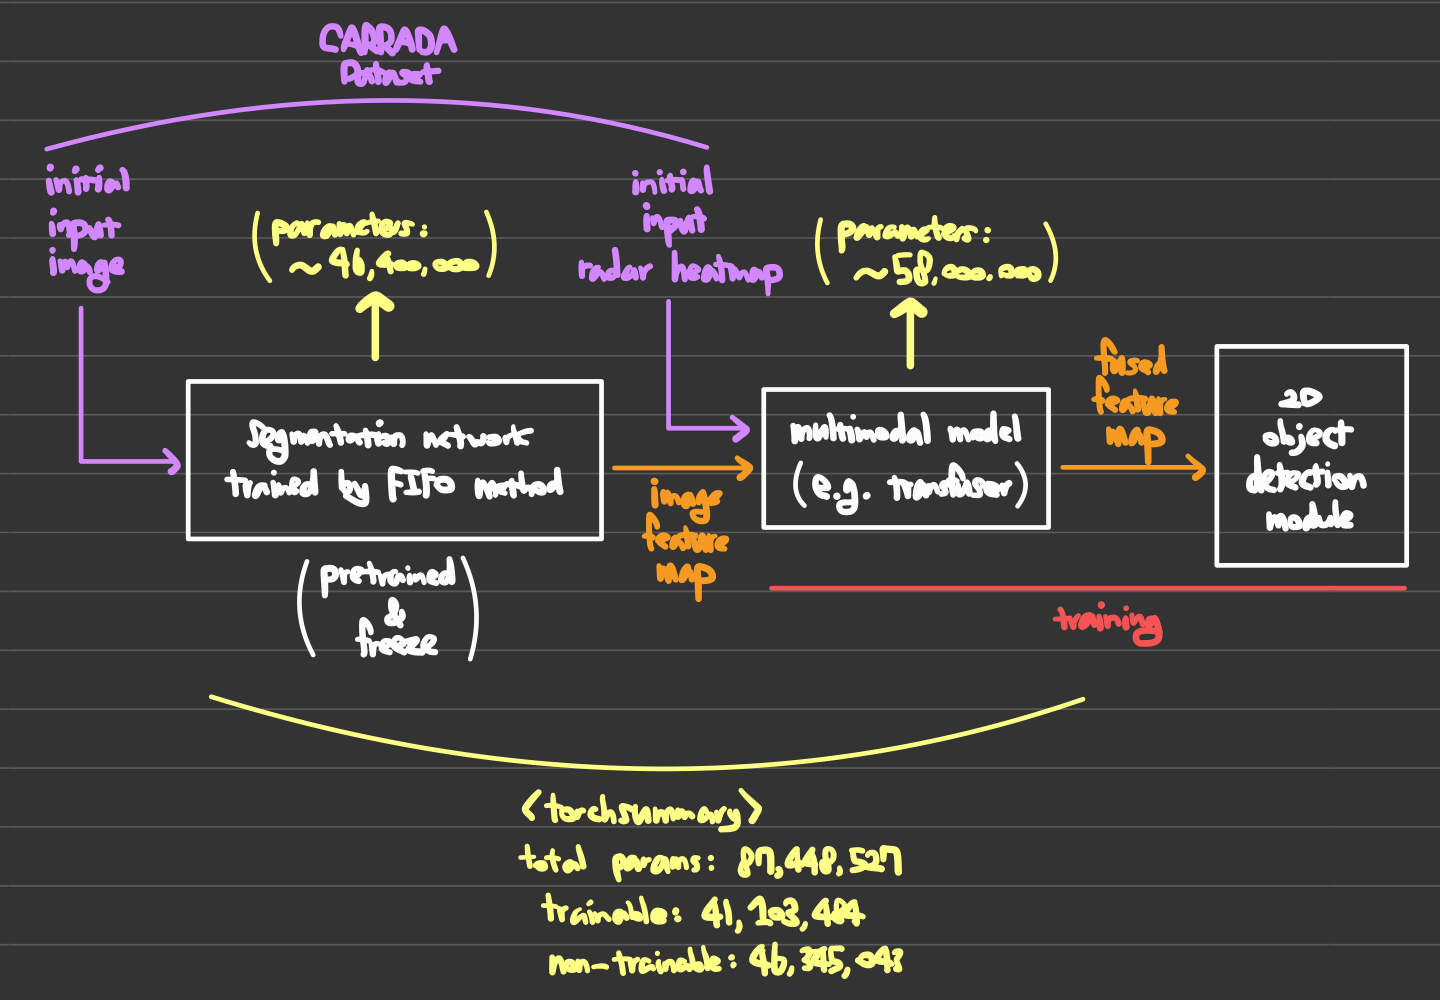 CARRADA
Dataset
initial
input
image
(parameters:
~46,400,000)
initial
input
radar heatmap
(parameters:
~58,000,000)
segmentation network
trained by FIFO method
(pretrained
&
freeze)
image
feature
map
multimodal model
(e.g. transfuser)
fused
feature
map
2D
object
detection
module
training
<torchsummary>
total params: 87,448,527
trainable: 41,103,484
non-trainable: 46,345,043